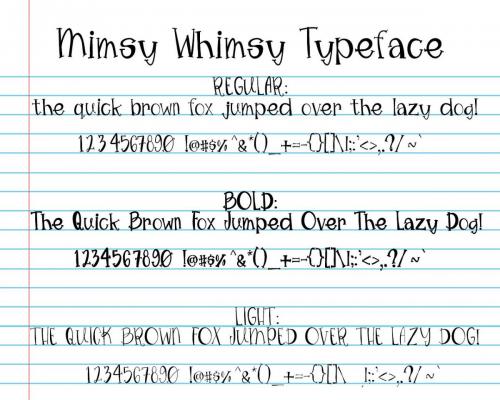 Mimsy Whimsy Typeface
REGULAR:
the quick brown fox jumped over the lazy dog!
1234567890 !@#$% ^&*()_+=-{}[]\|;:'<>,.?/ ~`
BOLD:
The Quick Brown Fox Jumped Over The Lazy Dog!
1234567890 !@#$% ^&*()_+=-{}[]\|;:'<>,.?/ ~`
LIGHT:
THE QUICK BROWN FOX JUMPED OVER THE LAZY DOG!
1234567890 !@#$% ^&*()_+=-{}[] |;:'<>,.?/ ~`